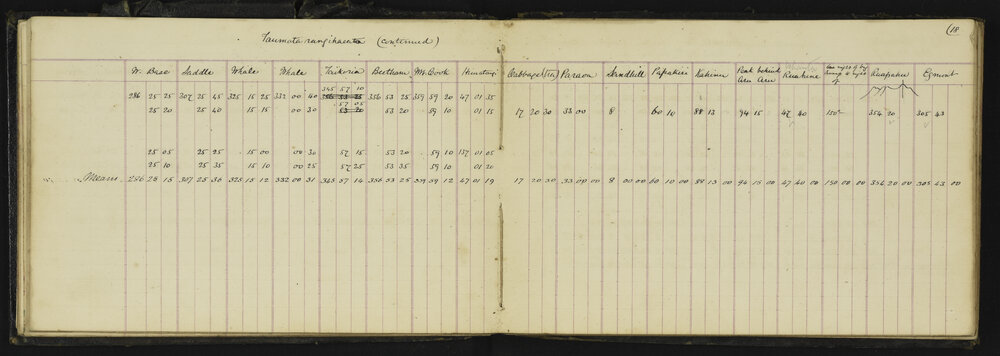 (18
(continued)
W. Base Saddle Whale Whale Trikoria Beetham Mt. Cook Huatangi Cabbage Tree Paraoa Sandhill Papakiri Peak behind Aru Aru Ruahine Ruapahu Egmont
345 57 10
286 25 25 307 25 45 325 15 25 332 00 40 356 53 25 359 59 20 47 01 35
57 05
25 20 25 40 15 15 00 30 53 20 53 20 59 10 01 15 17 20 30 33 00 8 60 10 88 13 94 15 47 40 150 354 20 305 43
25 05 25 25 15 00 00 30 57 15 53 20 59 10 157 01 05
25 10 25 35 15 10 00 25 57 25 53 35 59 10 01 20
Means 286 25 15 307 25 36 325 15 12 332 00 31 345 57 14 356 53 25 359 59 12 47 01 19 17 20 30 33 00 00 8 00 00 60 10 00 88 13 00 94 15 00 47 40 00 150 00 00 354 20 00 305 43 00